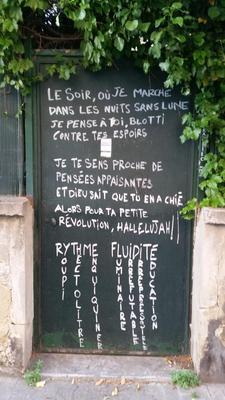 LE SOIR, OÙ JE MARCHE
DANS LES NUITS SANS LUNE
JE PENSE À TOI, BLOTTI
CONTRE TES ESPOIRS
JE TE SENS PROCHE DE
PENSÉES APPAISANTES
ET DIEU SAIT QUE TU EN A CHIÉ
ALORS POUR TA PETITE
RÉVOLUTION, HALLELUJAH!!
RYTHME FLUIDITÉ
OUPI
ECTOLITRE
NQUIQUINER
UMINAIRE
RREFUTABLE
RREPRESSIBLE
DUCATION